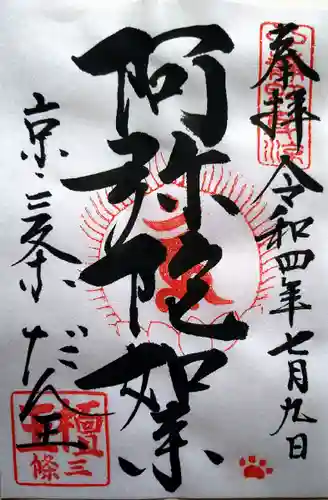 奉拝
令和四年七月九日
阿弥陀如来
京・三条
だん王
檀王
三條